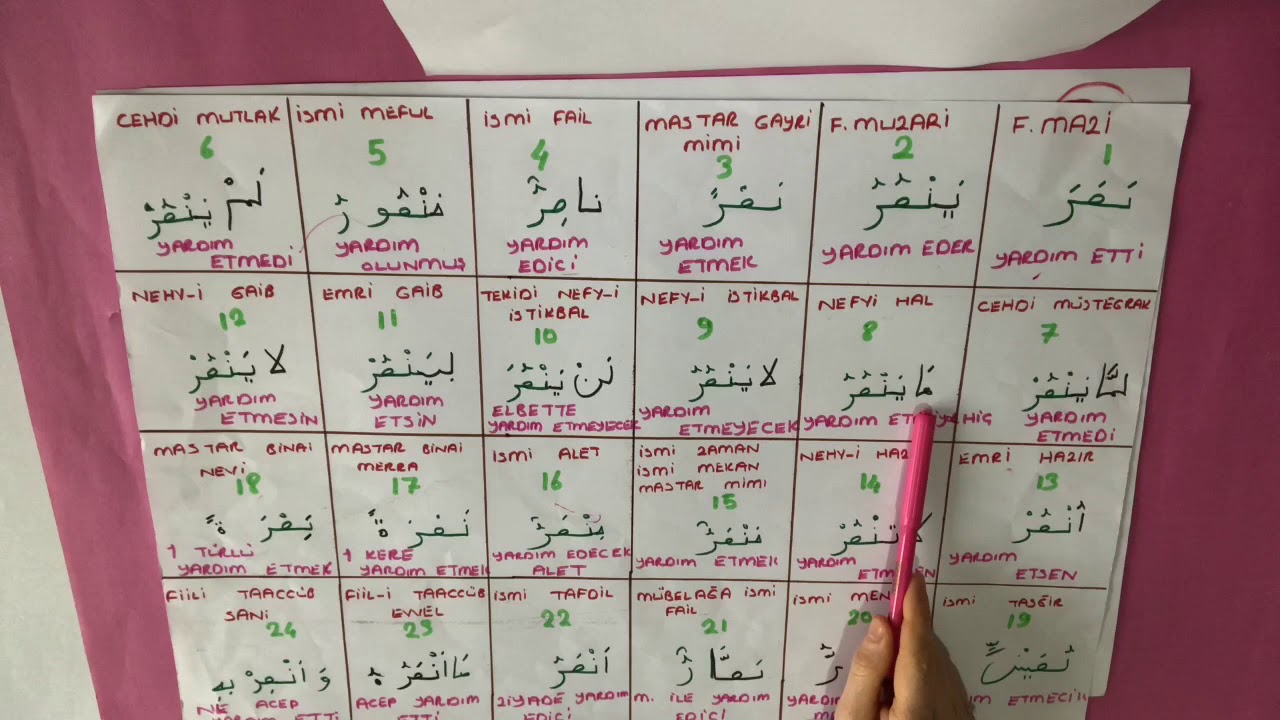 F. MAZİ
1
نَصَرَ
YARDIM ETTİ
F. MUZARİ
2
يَنْصُرُ
YARDIM EDER
MASTAR GAYRİ
MİMİ
3
نَصْرًا
YARDIM
ETMEK
İSMİ FAİL
4
نَاصِرٌ
YARDIM
EDİCİ
İSMİ MEFUL
5
مَنْصُورٌ
YARDIM
OLUNMUŞ
CEHDİ MUTLAK
6
لَمْ يَنْصُرْ
YARDIM
ETMEDİ
CEHDİ MÜSTEĞRAK
7
لَمَّا يَنْصُرْ
HİÇ
YARDIM
ETMEDİ
NEFYİ HAL
8
مَا يَنْصُرُ
YARDIM
NEFY-İ İSTİKBAL
9
لَا يَنْصُرُ
YARDIM
ETMEYECEK
TEKİDİ NEFY-İ
İSTİKBAL
10
لَنْ يَنْصُرَ
ELBETTE
YARDIM ETMEYECEK
EMRİ GAİB
11
لِيَنْصُرْ
YARDIM
ETSİN
NEHY-İ GAİB
12
لَا يَنْصُرْ
YARDIM
ETMESİN
EMRİ HAZIR
13
أُنْصُرْ
YARDIM
ETSEN
NEHY-İ
14
لَا تَنْصُرْ
YARDIM
İSMİ ZAMAN
İSMİ MEKAN
MASTAR MİMİ
15
مَنْصَرٌ
YARDIM ETMEK
İSMİ ALET
16
مِنْصَرٌ
YARDIM EDECEK
ALET
MASTAR BİNAİ
MERRA
17
نَصْرَةً
1 KERE
YARDIM ETMEK
MASTAR BİNAİ
NEVİ
18
نِصْرَةً
1 TÜRLÜ
YARDIM ETMEK
İSMİ TASĞİR
19
ETMECİK
İSMİ
20
MÜBELAĞA İSMİ
FAİL
21
نَصَّارٌ
M. İLE YARDIM
EDİCİ
İSMİ TAFDİL
22
أَنْصَرُ
ZİYADE YARDIM
EDİCİ
FİİL-İ TAACCÜB
EVVEL
23
مَا أَنْصَرَهُ
ACEP YARDIM
ETTİ
FİİLİ TAACCÜB
SANİ
24
وَأَنْصِرْ بِهِ
NE ACEP
YARDIM ETTİ